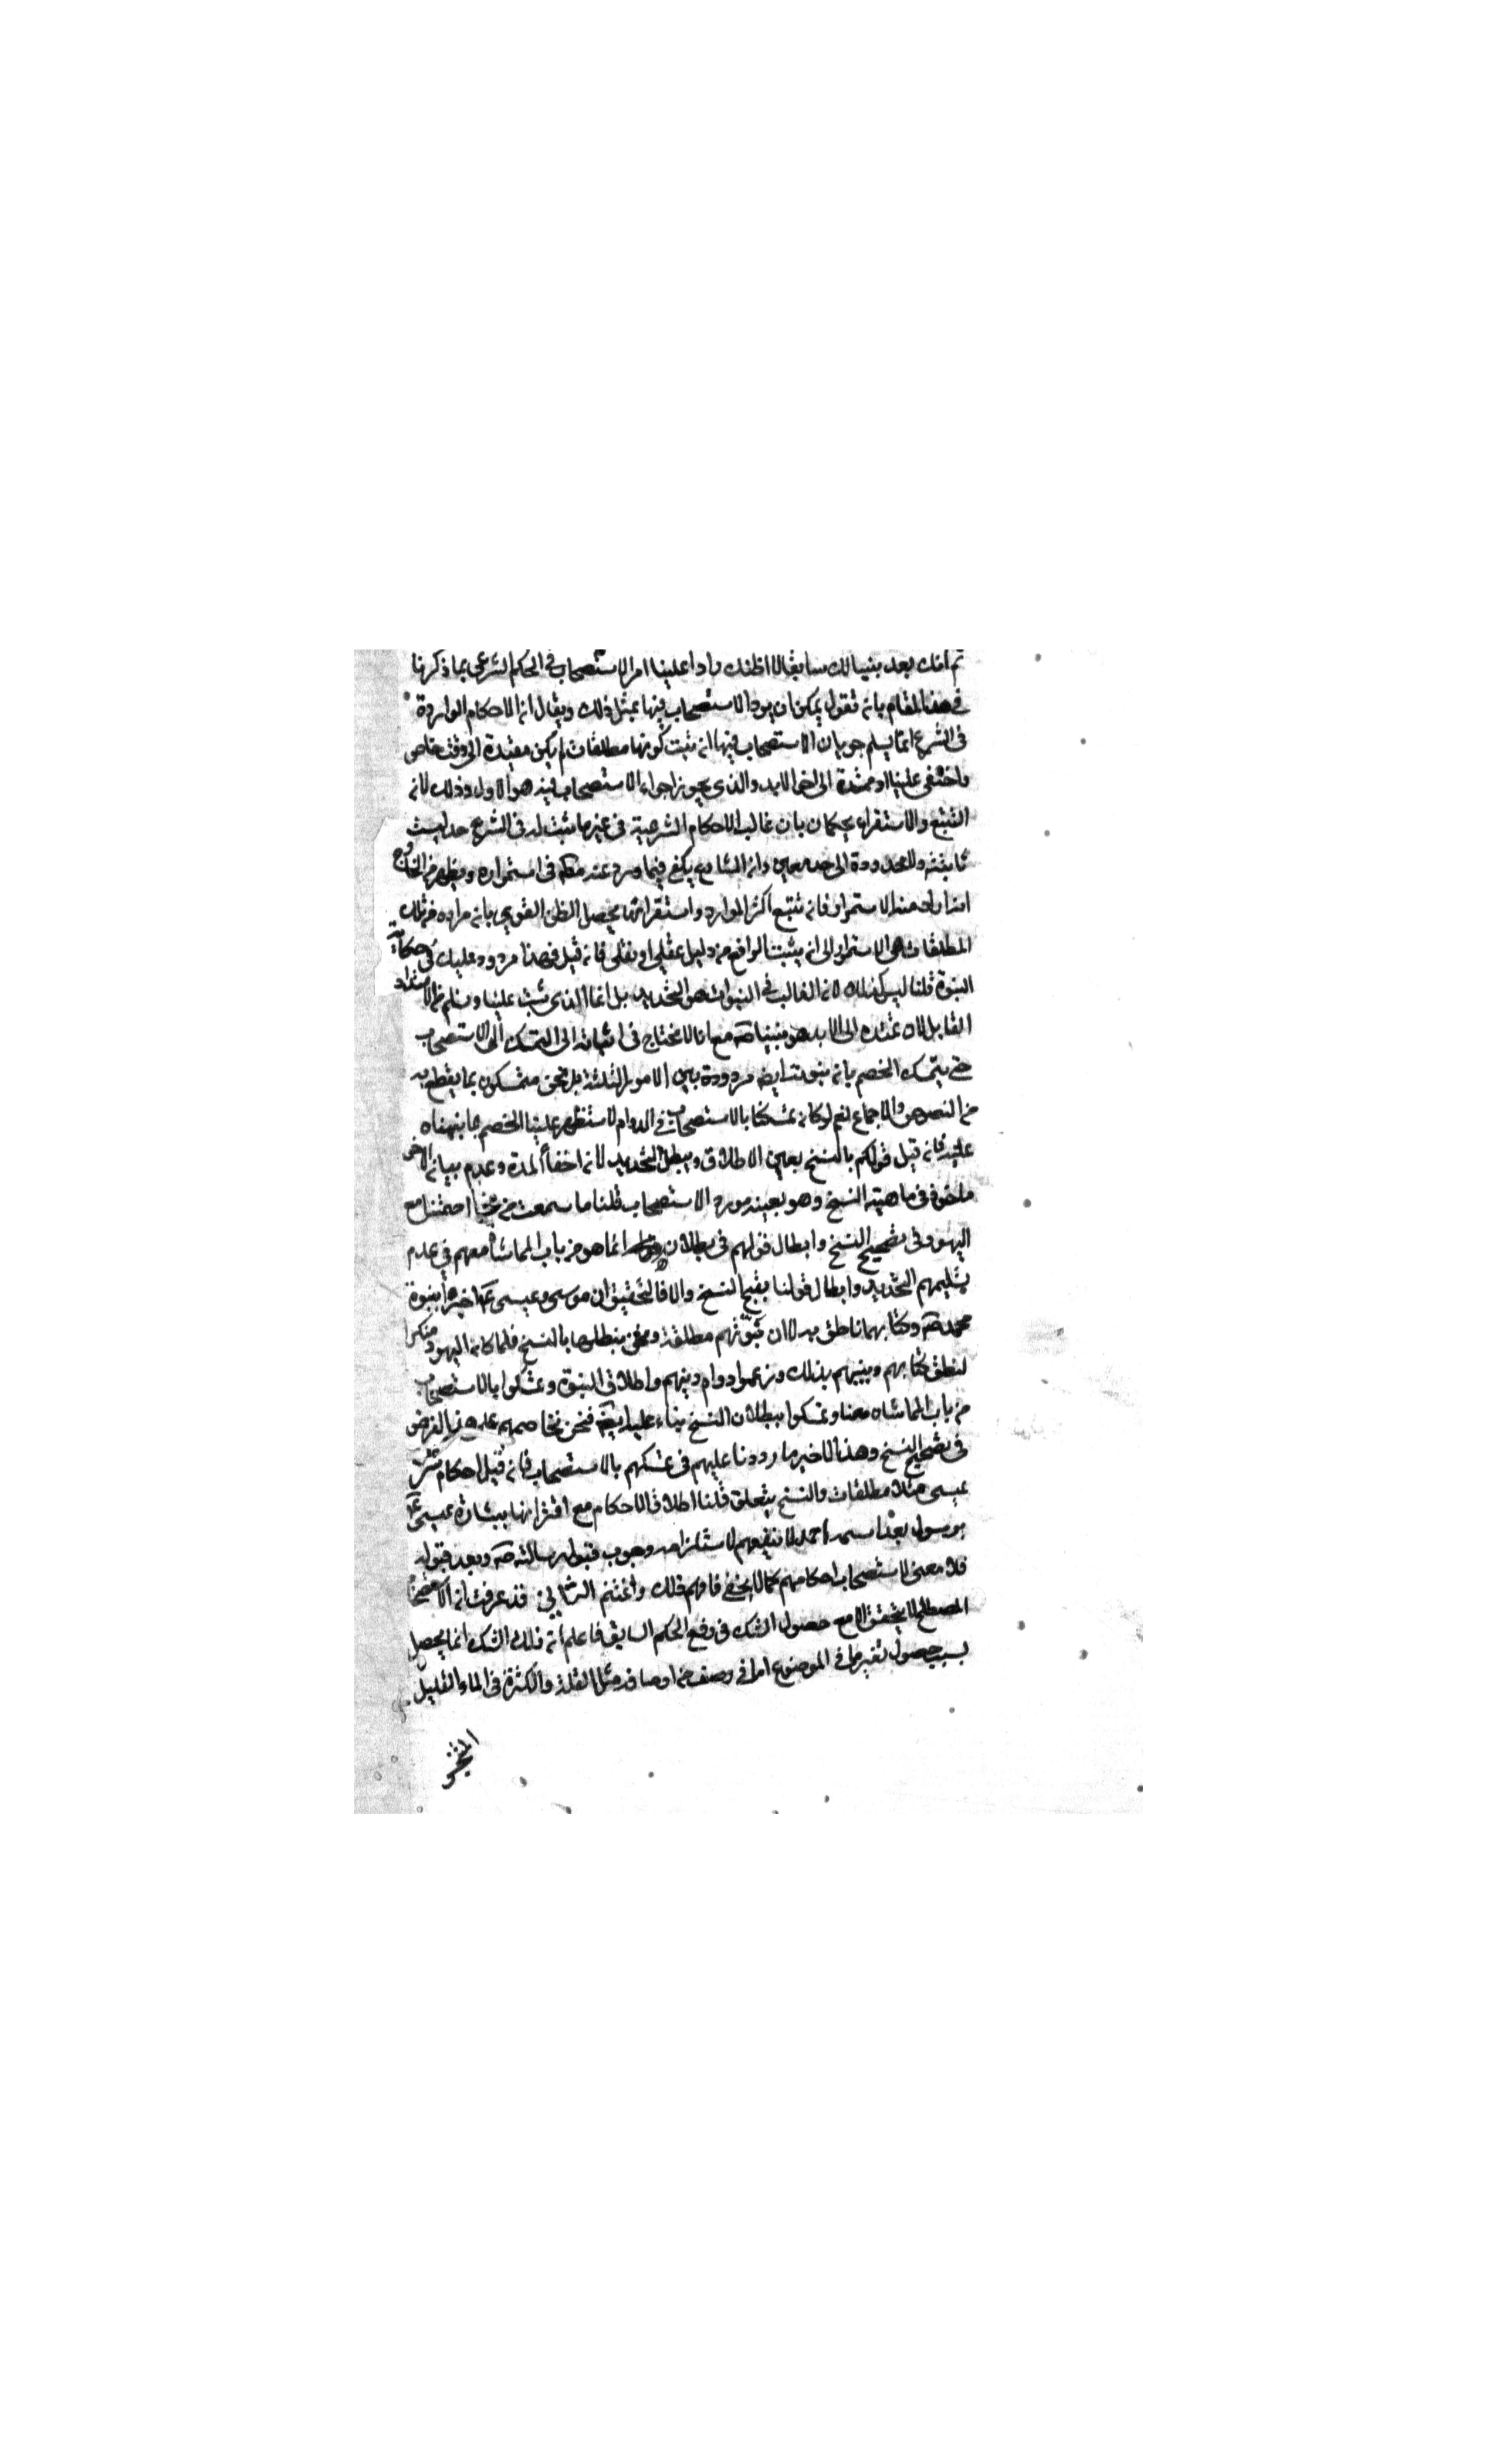 ثم انك بعد بنينا لك سابقا لا اظنك رادا علينا امر الاستصحاب في الحكم الشرعي بما ذكرنا
في هذا المقام بان تقول يمكن ان يرد الاستصحاب فيها بمثل ذلك ويقال ان الاحكام الواردة
في الشرع انما يسلم جريان الاستصحاب فيها ان ثبت كونها مطلقات لم يكن مقيدة الى وقت خاص
واختفى علينا او ممتدة الى اخر الابد والذي يجوز اجراء الاستصحاب فيه هو الاول وذلك لان
التتبع والاستقراء يحكمان بان غالب الاحكام الشرعية في غير ما ثبت له في الشرع حد ليست
بآنية ولا محدودة الى حد معين وان الشارع يكتفي فيما ورد عنه مطلقا في استمراره ويظهر من الخارج
انه اراد منه الاستمرار فان تتبع اكثر الموارد واستقرائها يحصل الظن القوي بان مراده من تلك
المطلقات هي الاستمرار الى ان يثبت الرافع من دليل عقلي او نقلي فان قيل فهذا مردود عليك في حكاية
النبوة قلنا ليس كذلك لان الغالب في النبوات هو التحديد بل انما الذي ثبت علينا وسلم من الامتداد
القابل لان تمتد الى الابد هو نبينا صه مع انا لا نحتاج في اثباته الى التمسك الى الاستصحاب
حتى يتمسك الخصم بان نبوته ايضا مردودة بين الامور الثلثة بل نحن متمسكون بما يقطع به
من النصوص والاجماع نعم لو كان تمسكنا بالاستصحاب في الدوام لاستظهر علينا الخصم بما نبهناه
عليه فان قيل قولكم بالنسخ يعين الاطلاق ويبطل التحديد لان اخفاء المدة وعدم بيان الاخر
ماخوذ في ماهية النسخ وهو بعينه مورد الاستصحاب قلنا ما سمعت من مخاصمتنا مع
اليهود في تصحيح النسخ وابطال قولهم في بطلانه انما هو من باب المماشاة معهم في عدم
تسليمهم التحديد وابطال قولنا بقبح النسخ والا فالتحقيق ان موسى وعيسى ع اخبرا بنبوة
محمد صه وكتابهما ناطق به لا ان نبوتهم مطلقة ونحن نبطلها بالنسخ فلما كان اليهود منكرا
لنطق كتابهم ونبيهم بذلك وزعموا دوام دينهم واطلاق النبوة وتمسكوا بالاستصحاب
من باب المماشاه معنا وتمسكوا ببطلان النسخ بناء عليه ايضا فنحن نخاصمهم على هذا الفرض
في تصحيح النسخ وهذا لا خير ما رددنا عليهم في تمسكهم بالاستصحاب فان قيل احكام شرع
عيسى مثلا مطلقات والنسخ يتعلق قلنا اطلاق الاحكام مع اقترانها ببشارة عيسى ع
برسول بعده اسمه احمد لا ينفعهم لاستلزامه وجوب قبول رسالته صه وبعد قبوله
فلا معنى لاستصحاب احكامهم كما لا يخفى فافهم ذلك واغتنم الثاني قد عرفت ان الاستصحاب
المصطلح لا يتحقق الا مع حصول الشك في رفع الحكم السابق فاعلم ان ذلك الشك انما يحصل
بسبب حصول تغير ما في الموضوع اما في وصف من اوصافه مثل القلة والكثرة في الماء القليل